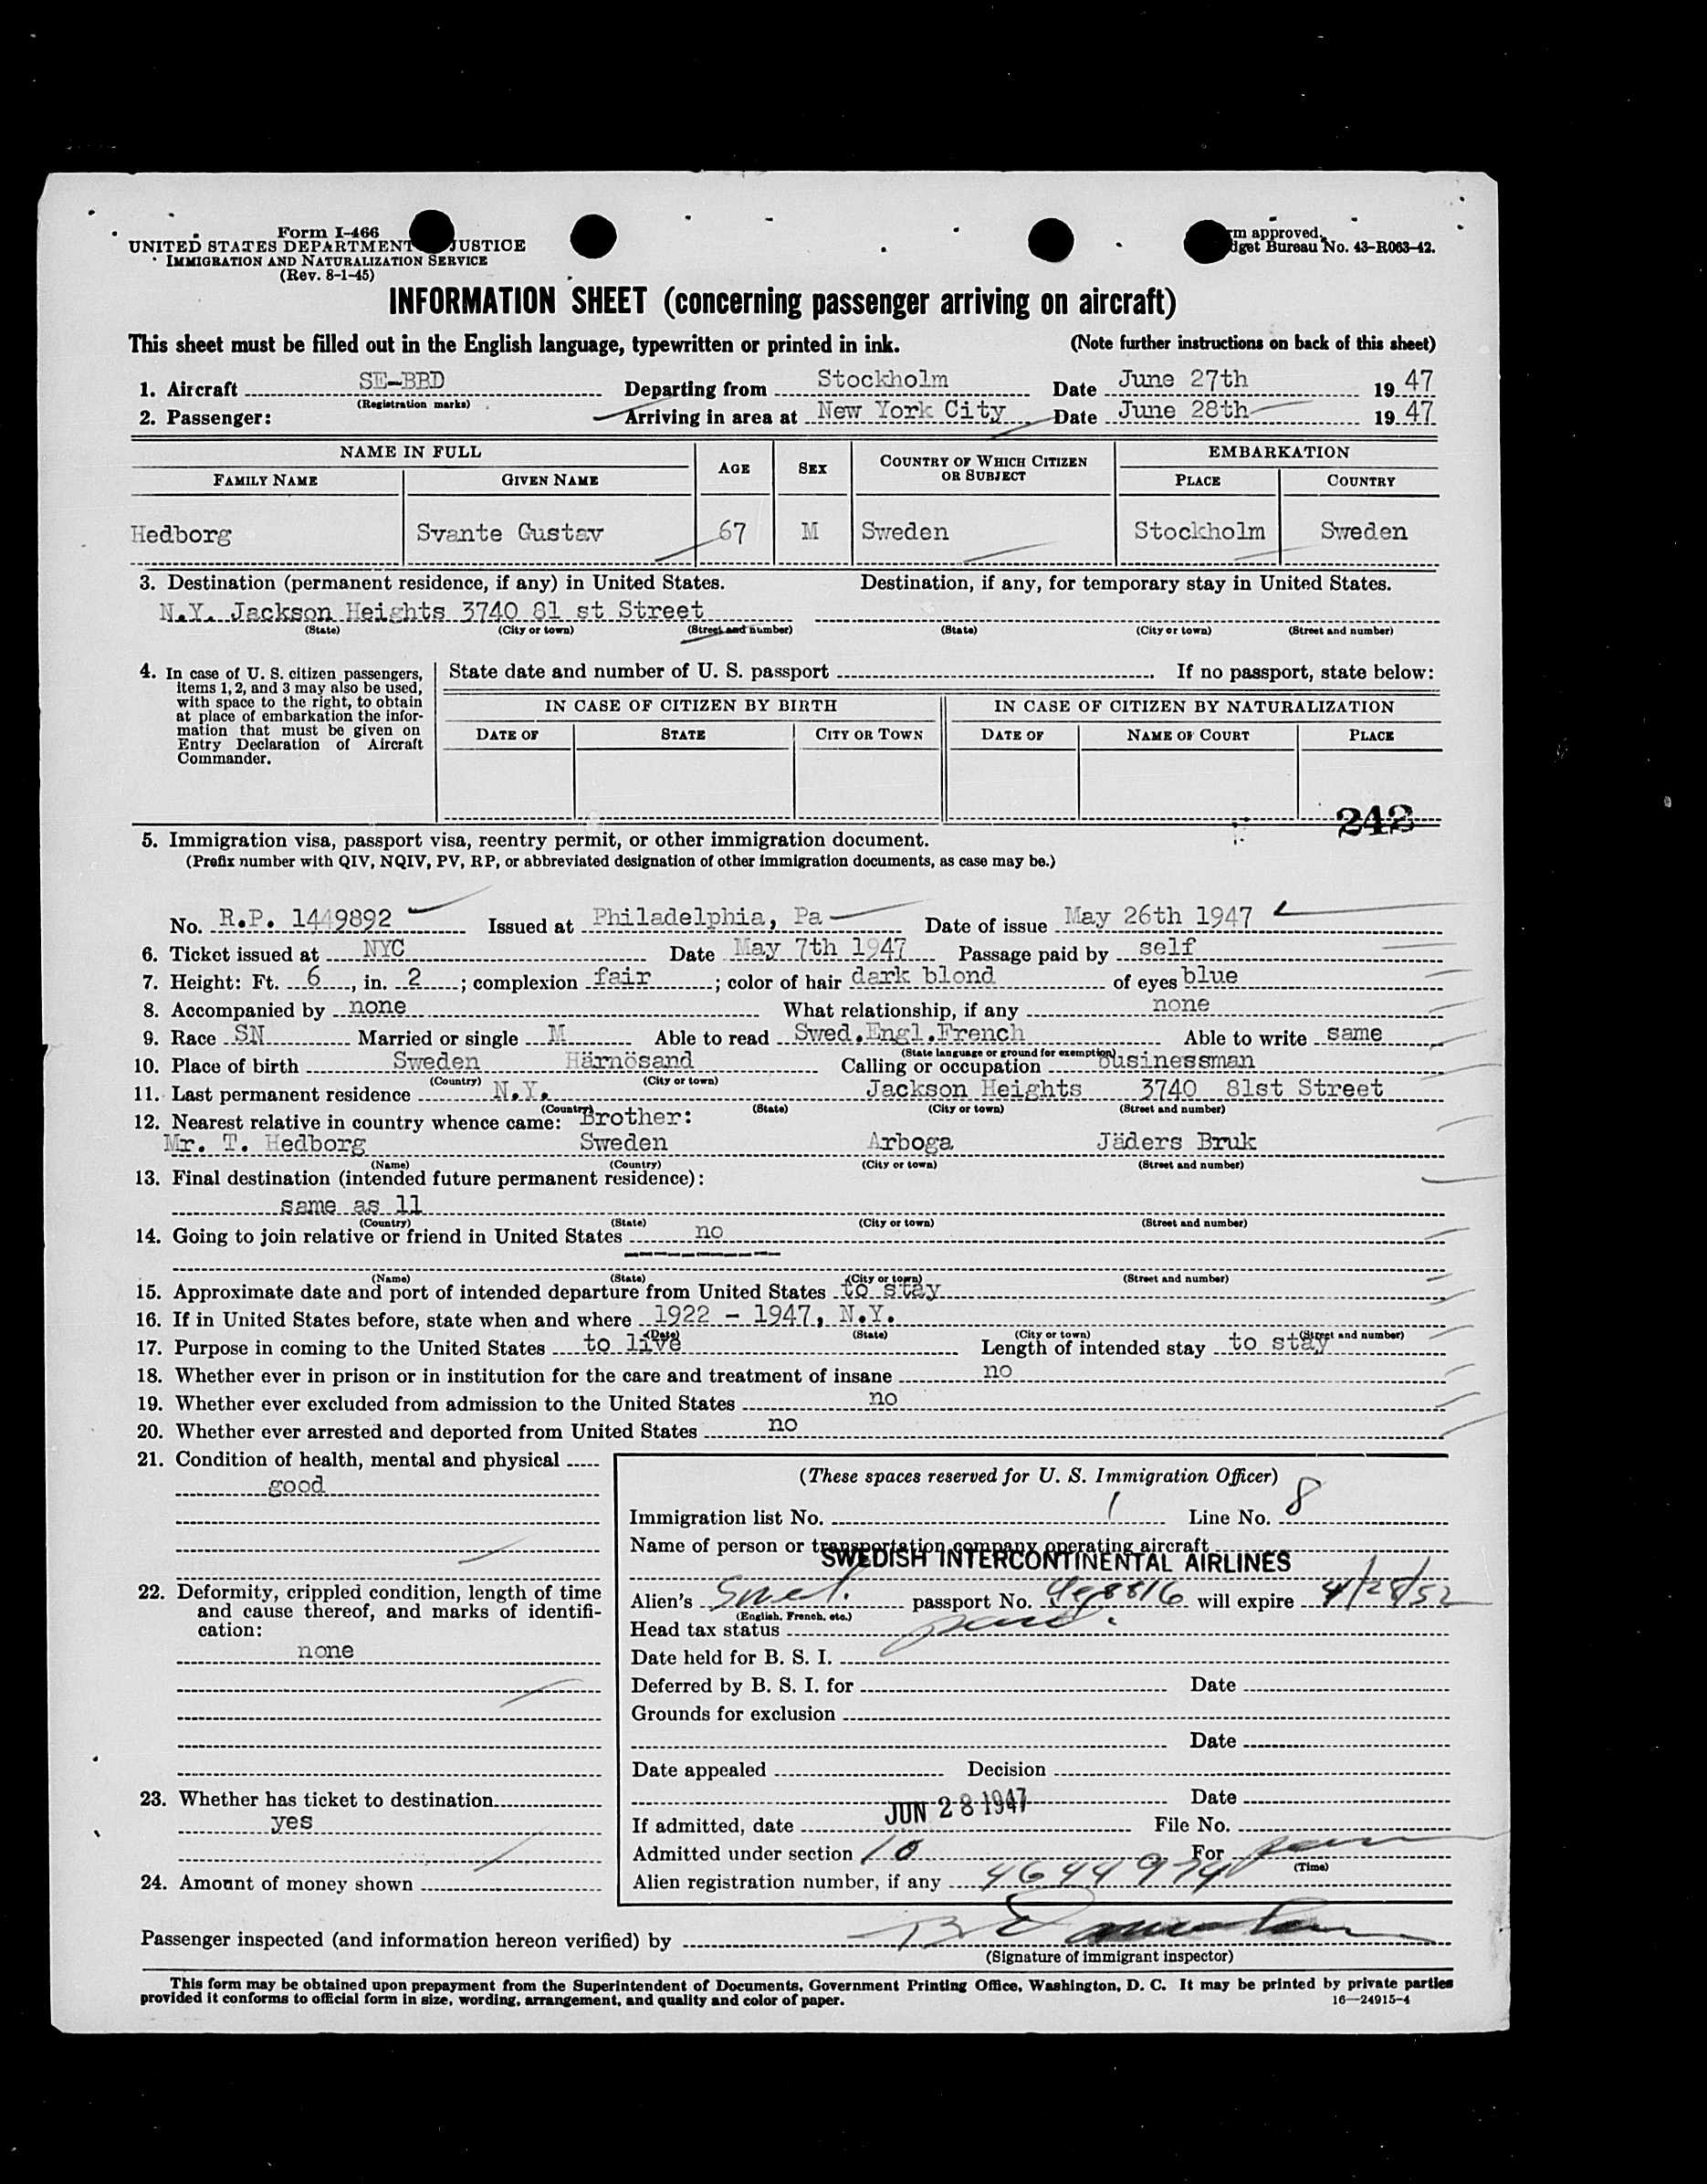 Form I-466
UNITED STATES DEPARTMENT JUSTICE
IMMIGRATION AND NATURALIZATION SERVICE
(Rev. 8-1-45)
rm approved.
dget Bureau No. 43-R063-42.
INFORMATION SHEET (concerning passenger arriving on aircraft)
This sheet must be filled out in the English language, typewritten or printed in ink. (Note further instructions on back of this sheet)
1. Aircraft SE-BBD Departing from Stockholm Date June 27th 1947
(Registration marks)
2. Passenger: Arriving in area at New York City Date June 28th 1947
NAME IN FULL AGE SEX COUNTRY OF WHICH CITIZEN OR SUBJECT EMBARKATION
FAMILY NAME GIVEN NAME PLACE COUNTRY
Hedborg Svante Gustav 67 M Sweden Stockholm Sweden
3. Destination (permanent residence, if any) in United States. Destination, if any, for temporary stay in United States.
N.Y. Jackson Heights 3740 81 st Street
(State) (City or town) (Street and number) (State) (City or town) (Street and number)
4. In case of U. S. citizen passengers, items 1, 2, and 3 may also be used, with space to the right, to obtain at place of embarkation the information that must be given on Entry Declaration of Aircraft Commander.
State date and number of U. S. passport If no passport, state below:
IN CASE OF CITIZEN BY BIRTH IN CASE OF CITIZEN BY NATURALIZATION
DATE OF STATE CITY OR TOWN DATE OF NAME OF COURT PLACE
242
5. Immigration visa, passport visa, reentry permit, or other immigration document.
(Prefix number with QIV, NQIV, PV, RP, or abbreviated designation of other immigration documents, as case may be.)
No. R.P. 1449892 Issued at Philadelphia, Pa Date of issue May 26th 1947
6. Ticket issued at NYC Date May 7th 1947 Passage paid by self
7. Height: Ft. 6, in. 2; complexion fair; color of hair dark blond of eyes blue
8. Accompanied by none What relationship, if any none
9. Race SN Married or single M Able to read Swed.Engl.French Able to write same
(State language or ground for exemption)
10. Place of birth Sweden Härnösand Calling or occupation businessman
(Country) (City or town)
11. Last permanent residence N.Y. Jackson Heights 3740 81st Street
(Country) (State) (City or town) (Street and number)
12. Nearest relative in country whence came: Brother:
Mr. T. Hedborg Sweden Arboga Jäders Bruk
(Name) (Country) (City or town) (Street and number)
13. Final destination (intended future permanent residence):
same as 11
(Country) (State) (City or town) (Street and number)
14. Going to join relative or friend in United States no
(Name) (State) (City or town) (Street and number)
15. Approximate date and port of intended departure from United States to stay
16. If in United States before, state when and where 1922 - 1947, N.Y.
(Date) (State) (City or town) (Street and number)
17. Purpose in coming to the United States to live Length of intended stay to stay
18. Whether ever in prison or in institution for the care and treatment of insane no
19. Whether ever excluded from admission to the United States no
20. Whether ever arrested and deported from United States no
21. Condition of health, mental and physical
good
22. Deformity, crippled condition, length of time
and cause thereof, and marks of identifi-
cation:
none
23. Whether has ticket to destination
yes
24. Amount of money shown
(These spaces reserved for U. S. Immigration Officer)
Immigration list No. 1 Line No. 8
Name of person or transportation company operating aircraft
SWEDISH INTERCONTINENTAL AIRLINES
Alien's Swed. passport No. will expire 4/28/52
(English, French, etc.)
Head tax status paid.
Date held for B. S. I.
Deferred by B. S. I. for Date
Grounds for exclusion
Date
Date appealed Decision
Date
If admitted, date JUN 28 1947 File No.
Admitted under section 10 For perm
(Time)
Alien registration number, if any 4644974
Passenger inspected (and information hereon verified) by
(Signature of immigrant inspector)
This form may be obtained upon prepayment from the Superintendent of Documents, Government Printing Office, Washington, D. C. It may be printed by private parties
provided it conforms to official form in size, wording, arrangement, and quality and color of paper. 16—24915-4